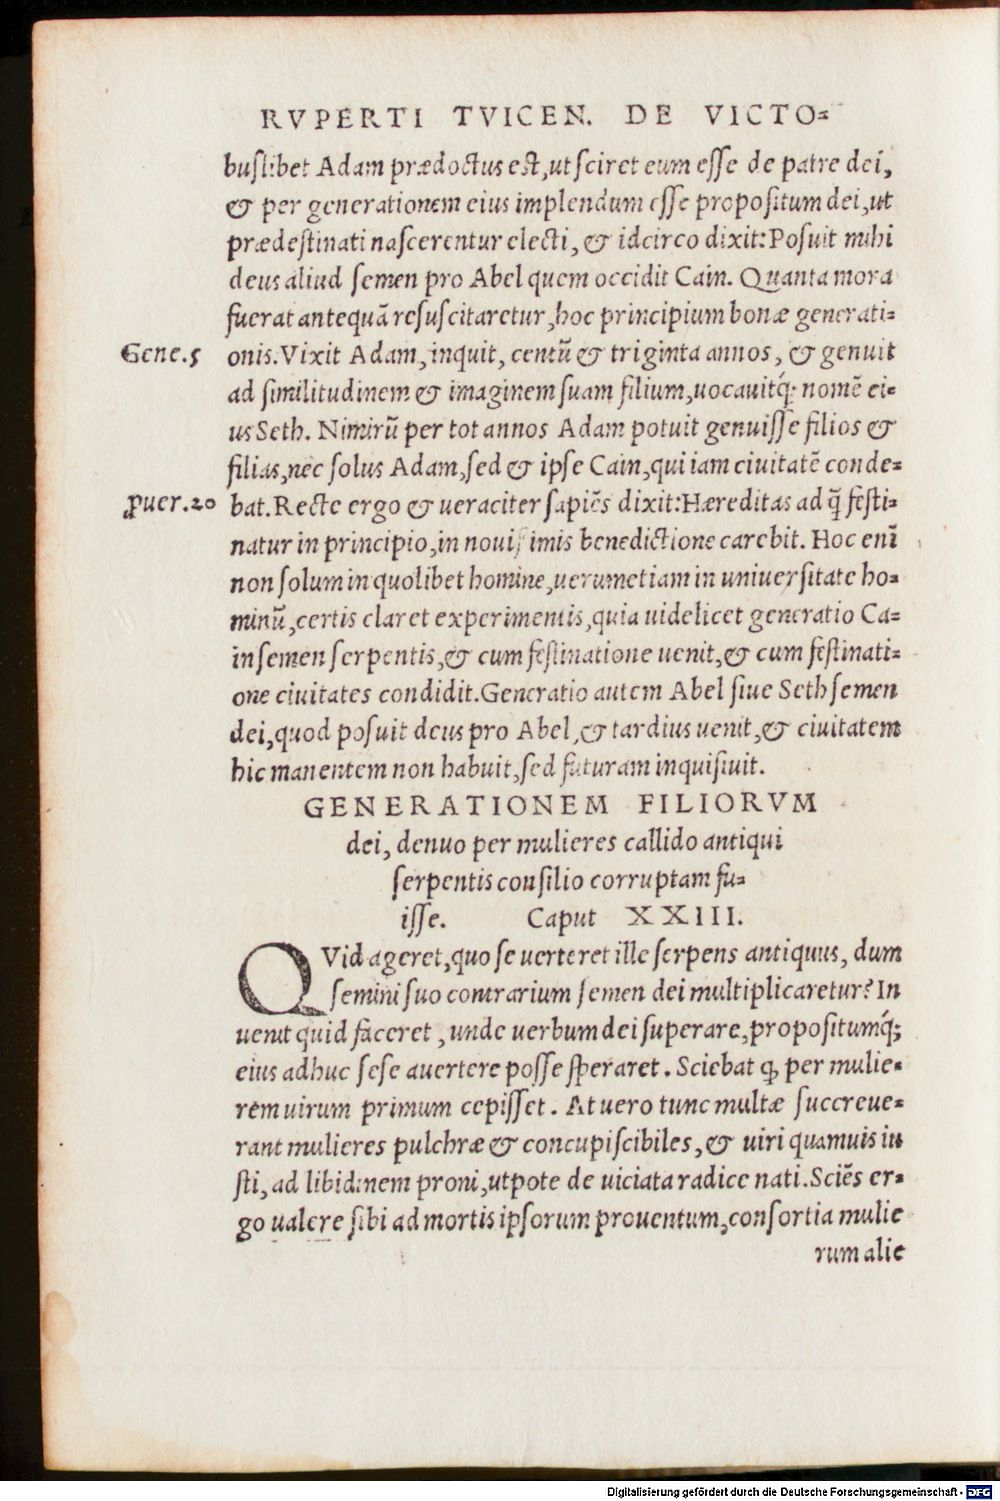 RVPERTI TVICEN. DE VICTO⸗
buſlibet Adam prædoctus est, ut ſciret eum eſſe de patre dei,
& per generationem eius implendum eſſe propoſitum dei, ut
prædeſtinati naſcerentur electi, & idcirco dixit: Poſuit mihi
deus aliud ſemen pro Abel quem occidit Cain. Quanta mora
fuerat antequā reſuſcitaretur, hoc principium bonæ generati⸗
Gene.5 onis. Vixit Adam, inquit, centū & triginta annos, & genuit
ad ſimilitudinem & imaginem ſuam filium, uocauitq́; nomē ei⸗
us Seth. Nimirū per tot annos Adam potuit genuiſſe filios &
filias, nec ſolus Adam, ſed & ipſe Cain, qui iam ciuitatē conde⸗
ꝓuer.20 bat. Recte ergo & ueraciter ſapiēs dixit: Hæreditas ad q̄ feſti⸗
natur in principio, in nouiſsimis benedictione carebit. Hoc enī
non ſolum in quolibet homine, uerumetiam in uniuerſitate ho⸗
minū, certis claret experimentis, quia uidelicet generatio Ca⸗
in ſemen ſerpentis, & cum feſtinatione uenit, & cum feſtinati⸗
one ciuitates condidit. Generatio autem Abel ſiue Seth ſemen
dei, quod poſuit deus pro Abel, & tardius uenit, & ciuitatem
hic manentem non habuit, ſed futuram inquiſiuit.
GENERATIONEM FILIORVM
dei, denuo per mulieres callido antiqui
ſerpentis conſilio corruptam fu⸗
iſſe. Caput XXIII.
QVid ageret, quo ſe uerteret ille ſerpens antiquus, dum
ſemini ſuo contrarium ſemen dei multiplicaretur? In
uenit quid faceret, unde uerbum dei ſuperare, propoſitumq́;
eius adhuc ſeſe auertere poſſe ſperaret. Sciebat ꝙ per mulie⸗
rem uirum primum cepiſſet. At uero tunc multæ ſuccreue⸗
rant mulieres pulchræ & concupiſcibiles, & uiri quamuis iu
ſti, ad libidinem proni, utpote de uiciata radice nati. Sciēs er⸗
go ualere ſibi ad mortis ipſorum prouentum, conſortia mulie
rum alie
Digitalisierung gefördert durch die Deutsche Forschungsgemeinschaft - DFG